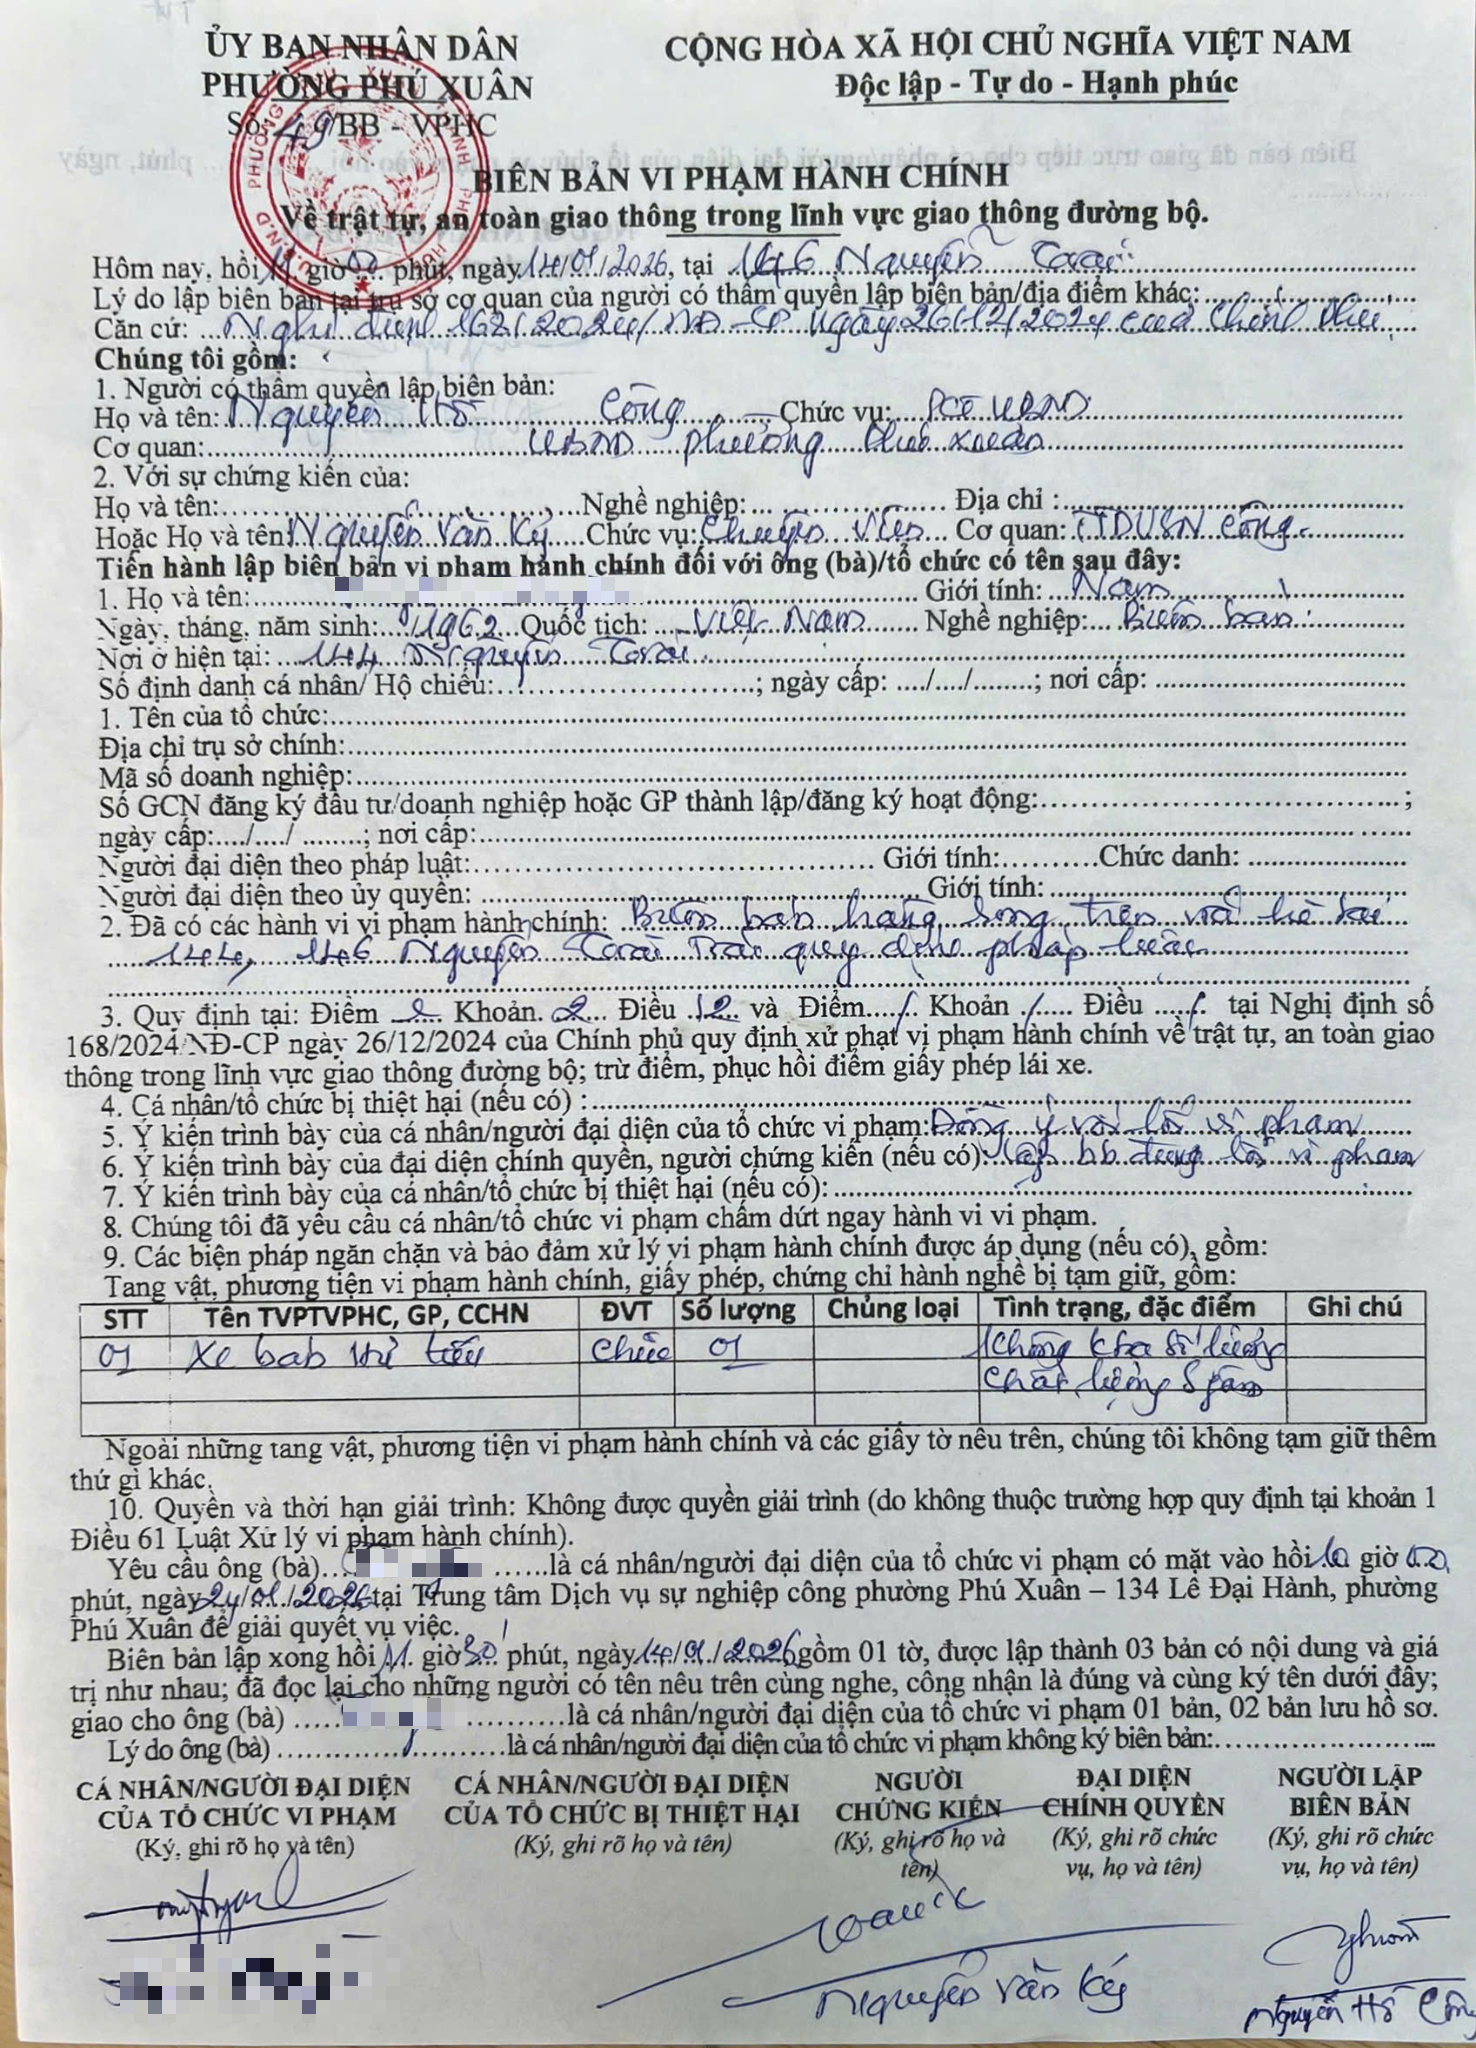 ỦY BAN NHÂN DÂN
PHƯỜNG PHÚ XUÂN
Số: 49/BB - VPHC
CỘNG HÒA XÃ HỘI CHỦ NGHĨA VIỆT NAM
Độc lập - Tự do - Hạnh phúc
BIÊN BẢN VI PHẠM HÀNH CHÍNH
Về trật tự, an toàn giao thông trong lĩnh vực giao thông đường bộ.
Hôm nay, hồi 11 giờ 00 phút, ngày 14/01/2026, tại 146 Nguyễn Trãi
Lý do lập biên bản tại trụ sở cơ quan của người có thẩm quyền lập biên bản/địa điểm khác:
Căn cứ: Nghị định 168/2024/NĐ-CP ngày 26/12/2024 của Chính Phủ
Chúng tôi gồm:
1. Người có thẩm quyền lập biên bản:
Họ và tên: Nguyễn Hố Công Chức vụ: PCT UBND
Cơ quan: UBND phường Phú Xuân
2. Với sự chứng kiến của:
Họ và tên: Nghề nghiệp: Địa chỉ :
Hoặc Họ và tên: Nguyễn Văn Ký Chức vụ: Chuyên viên Cơ quan: TTDVSN Công.
Tiến hành lập biên bản vi phạm hành chính đối với ông (bà)/tổ chức có tên sau đây:
1. Họ và tên: Giới tính: Nam
Ngày, tháng, năm sinh: 1962 Quốc tịch: Việt Nam Nghề nghiệp: Buôn bán
Nơi ở hiện tại: 144 Nguyễn Trãi
Số định danh cá nhân/ Hộ chiếu: ; ngày cấp: ..../..../........; nơi cấp:
1. Tên của tổ chức:
Địa chỉ trụ sở chính:
Mã số doanh nghiệp:
Số GCN đăng ký đầu tư/doanh nghiệp hoặc GP thành lập/đăng ký hoạt động: ;
ngày cấp:..../..../ ........; nơi cấp:
Người đại diện theo pháp luật: Giới tính: Chức danh:
Người đại diện theo ủy quyền: Giới tính:
2. Đã có các hành vi vi phạm hành chính: Buôn bán hàng rong trên vỉa hè tại
144, 146 Nguyễn Trãi Trái quy định pháp luật
3. Quy định tại: Điểm Khoản 2 Điều 12 và Điểm / Khoản / Điều / tại Nghị định số
168/2024/NĐ-CP ngày 26/12/2024 của Chính phủ quy định xử phạt vi phạm hành chính về trật tự, an toàn giao
thông trong lĩnh vực giao thông đường bộ; trừ điểm, phục hồi điểm giấy phép lái xe.
4. Cá nhân/tổ chức bị thiệt hại (nếu có) :
5. Ý kiến trình bày của cá nhân/người đại diện của tổ chức vi phạm: Đồng ý với lỗi vi phạm
6. Ý kiến trình bày của đại diện chính quyền, người chứng kiến (nếu có): lập bb đúng lỗi vi phạm
7. Ý kiến trình bày của cá nhân/tổ chức bị thiệt hại (nếu có):
8. Chúng tôi đã yêu cầu cá nhân/tổ chức vi phạm chấm dứt ngay hành vi vi phạm.
9. Các biện pháp ngăn chặn và bảo đảm xử lý vi phạm hành chính được áp dụng (nếu có), gồm:
Tang vật, phương tiện vi phạm hành chính, giấy phép, chứng chỉ hành nghề bị tạm giữ, gồm:
STT Tên TVPTVPHC, GP, CCHN ĐVT Số lượng Chủng loại Tình trạng, đặc điểm Ghi chú
01 Xe bán hủ tiếu Chiếc 01 Không kha số lượng
chất lượng
Ngoài những tang vật, phương tiện vi phạm hành chính và các giấy tờ nêu trên, chúng tôi không tạm giữ thêm
thứ gì khác.
10. Quyền và thời hạn giải trình: Không được quyền giải trình (do không thuộc trường hợp quy định tại khoản 1
Điều 61 Luật Xử lý vi phạm hành chính).
Yêu cầu ông (bà) là cá nhân/người đại diện của tổ chức vi phạm có mặt vào hồi 10 giờ 00
phút, ngày 24/01/2026, tại Trung tâm Dịch vụ sự nghiệp công phường Phú Xuân – 134 Lê Đại Hành, phường
Phú Xuân để giải quyết vụ việc.
Biên bản lập xong hồi 11 giờ 30 phút, ngày 14/01/2026 gồm 01 tờ, được lập thành 03 bản có nội dung và giá
trị như nhau; đã đọc lại cho những người có tên nêu trên cùng nghe, công nhận là đúng và cùng ký tên dưới đây;
giao cho ông (bà) là cá nhân/người đại diện của tổ chức vi phạm 01 bản, 02 bản lưu hồ sơ.
Lý do ông (bà) là cá nhân/người đại diện của tổ chức vi phạm không ký biên bản:
CÁ NHÂN/NGƯỜI ĐẠI DIỆN
CỦA TỔ CHỨC VI PHẠM
(Ký, ghi rõ họ và tên)
CÁ NHÂN/NGƯỜI ĐẠI DIỆN
CỦA TỔ CHỨC BỊ THIỆT HẠI
(Ký, ghi rõ họ và tên)
NGƯỜI
CHỨNG KIẾN
(Ký, ghi rõ họ và
tên)
ĐẠI DIỆN
CHÍNH QUYỀN
(Ký, ghi rõ chức
vụ, họ và tên)
NGƯỜI LẬP
BIÊN BẢN
(Ký, ghi rõ chức
vụ, họ và tên)
Nguyễn Văn Ký
Nguyễn Hố Công